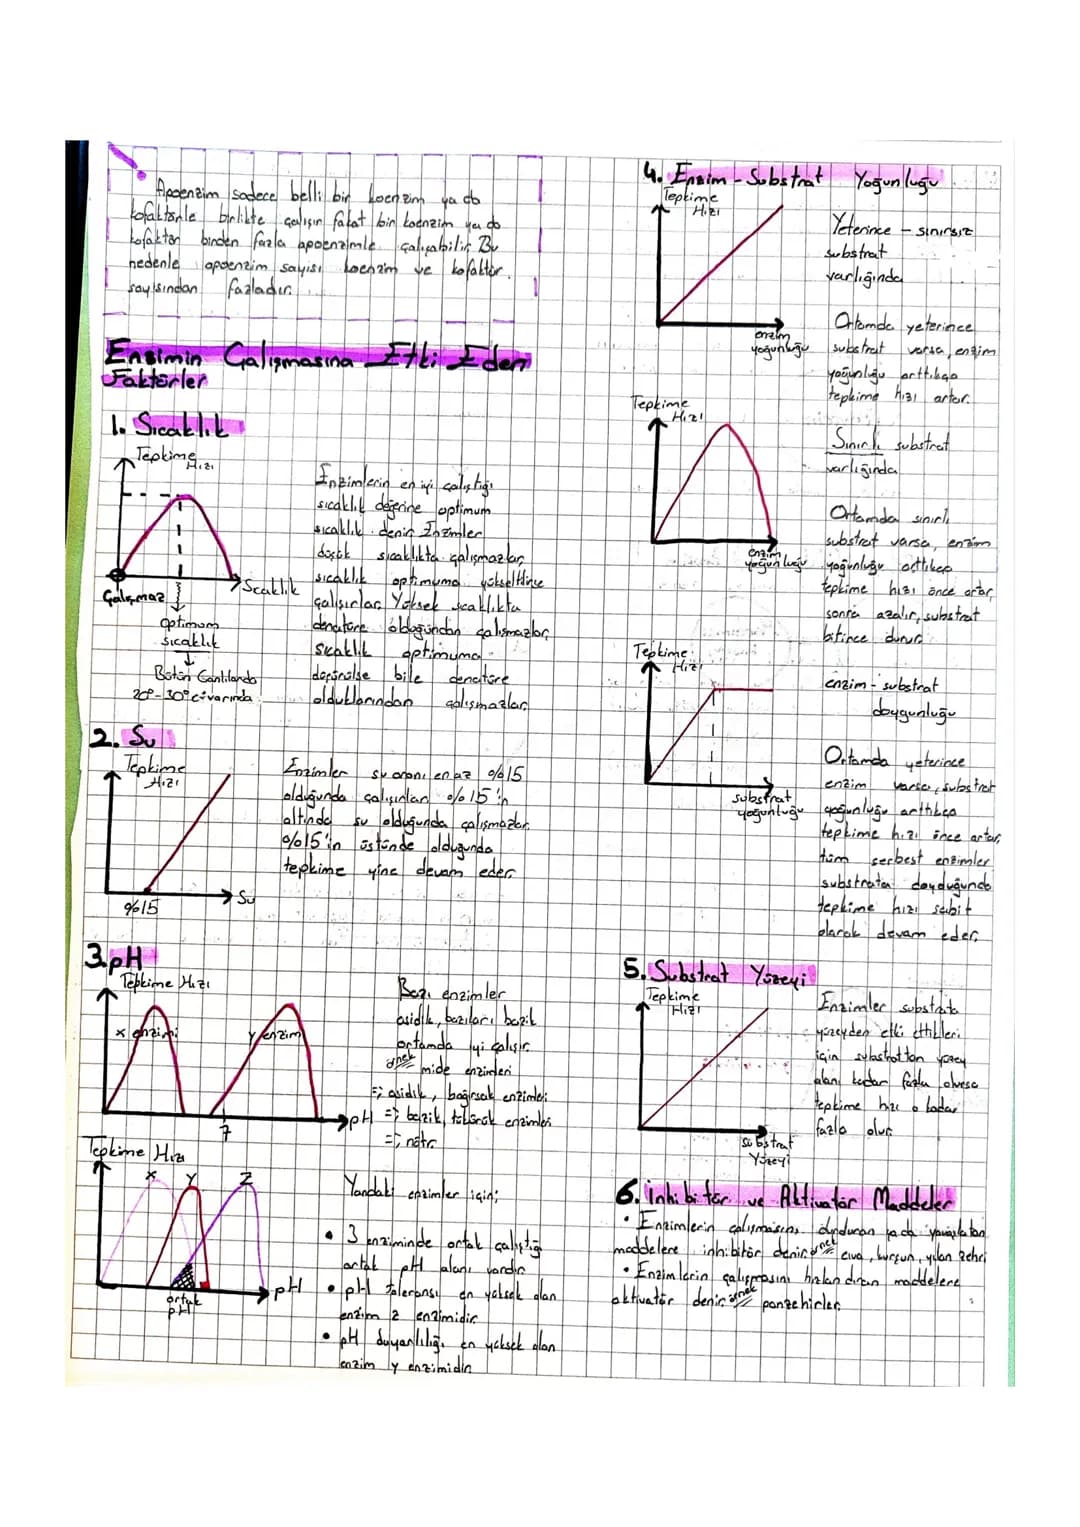 Apoenzim sadece belli bir koenzim ya da
kofaktörle birlikte çalışır fakat bir koenzim ya da
kofaktör birden fazla apoenzimle çalışabilir. Bu
nedenle apoenzim sayısı koenzim ve kofaktör
sayısından fazladır.
Enzimin Çalışmasına Etki Eden
Faktörler
1. Sıcaklık
Tepkime
Hızı
Sıcaklık
Çalışmaz
optimum
sıcaklık
Bütün Canlılarda
20°-30°c civarında
Enzimlerin en iyi çalıştığı
sıcaklık değerine optimum
sıcaklık denir. Enzimler
düşük sıcaklıkta çalışmazlar,
sıcaklık optimuma yükseltilirse
çalışırlar. Yüksek sıcaklıkta
denatüre olduğundan çalışmazlar,
sıcaklık optimuma
düşürülse bile denatüre
olduklarından çalışmazlar.
2. Su
Tepkime
Hızı
Su
%15
Enzimler su oranı en az %15
olduğunda çalışırlar. %15'in
altında su olduğunda çalışmazlar.
%15'in üstünde olduğunda
tepkime yine devam eder.
3. pH
Tepkime Hızı
x enzimi
y enzimi
pH
7
Bazı enzimler
asidik, bazıları bazik
ortamda iyi çalışır.
örnek mide enzimleri
=> asidik, bağırsak enzimleri
=> bazik, tükürük enzimleri
=> nötr.
Tepkime Hızı
X Y Z
pH
ortak
pH
Yandaki enzimler için;
• 3 enziminde ortak çalıştığı
ortak pH alanı vardır.
• pH toleransı en yüksek olan
enzim z enzimidir.
• pH duyarlılığı en yüksek olan
enzim y enzimidir.
4. Enzim - Substrat Yoğunluğu
Tepkime
Hızı
enzim
yoğunluğu
Yeterince - sınırsız
substrat
varlığında
Ortamda yeterince
substrat varsa, enzim
yoğunluğu arttıkça
tepkime hızı artar.
Tepkime
Hızı
enzim
yoğunluğu
Sınırlı substrat
varlığında
Ortamda sınırlı
substrat varsa, enzim
yoğunluğu arttıkça
tepkime hızı önce artar,
sonra azalır, substrat
bitince durur.
Tepkime
Hızı
substrat
yoğunluğu
enzim - substrat
doygunluğu
Ortamda yeterince
enzim varsa, substrat
yoğunluğu arttıkça
tepkime hızı önce artar,
tüm serbest enzimler
substrata doyduğunda
tepkime hızı sabit
olarak devam eder.
5. Substrat Yüzeyi
Tepkime
Hızı
substrat
Yüzeyi
Enzimler substrata
yüzeyden etki ettikleri
için substrattan yüzey
alanı kadar fazla olursa
tepkime hızı o kadar
fazla olur.
6. İnhibitör ve Aktivatör Maddeler
• Enzimlerin çalışmasını durduran ya da yavaşlatan
maddelere inhibitör denir. örnek civa, kurşun, yılan zehri
• Enzimlerin çalışmasını hızlandıran maddelere
aktivatör denir. örnek panzehirler.